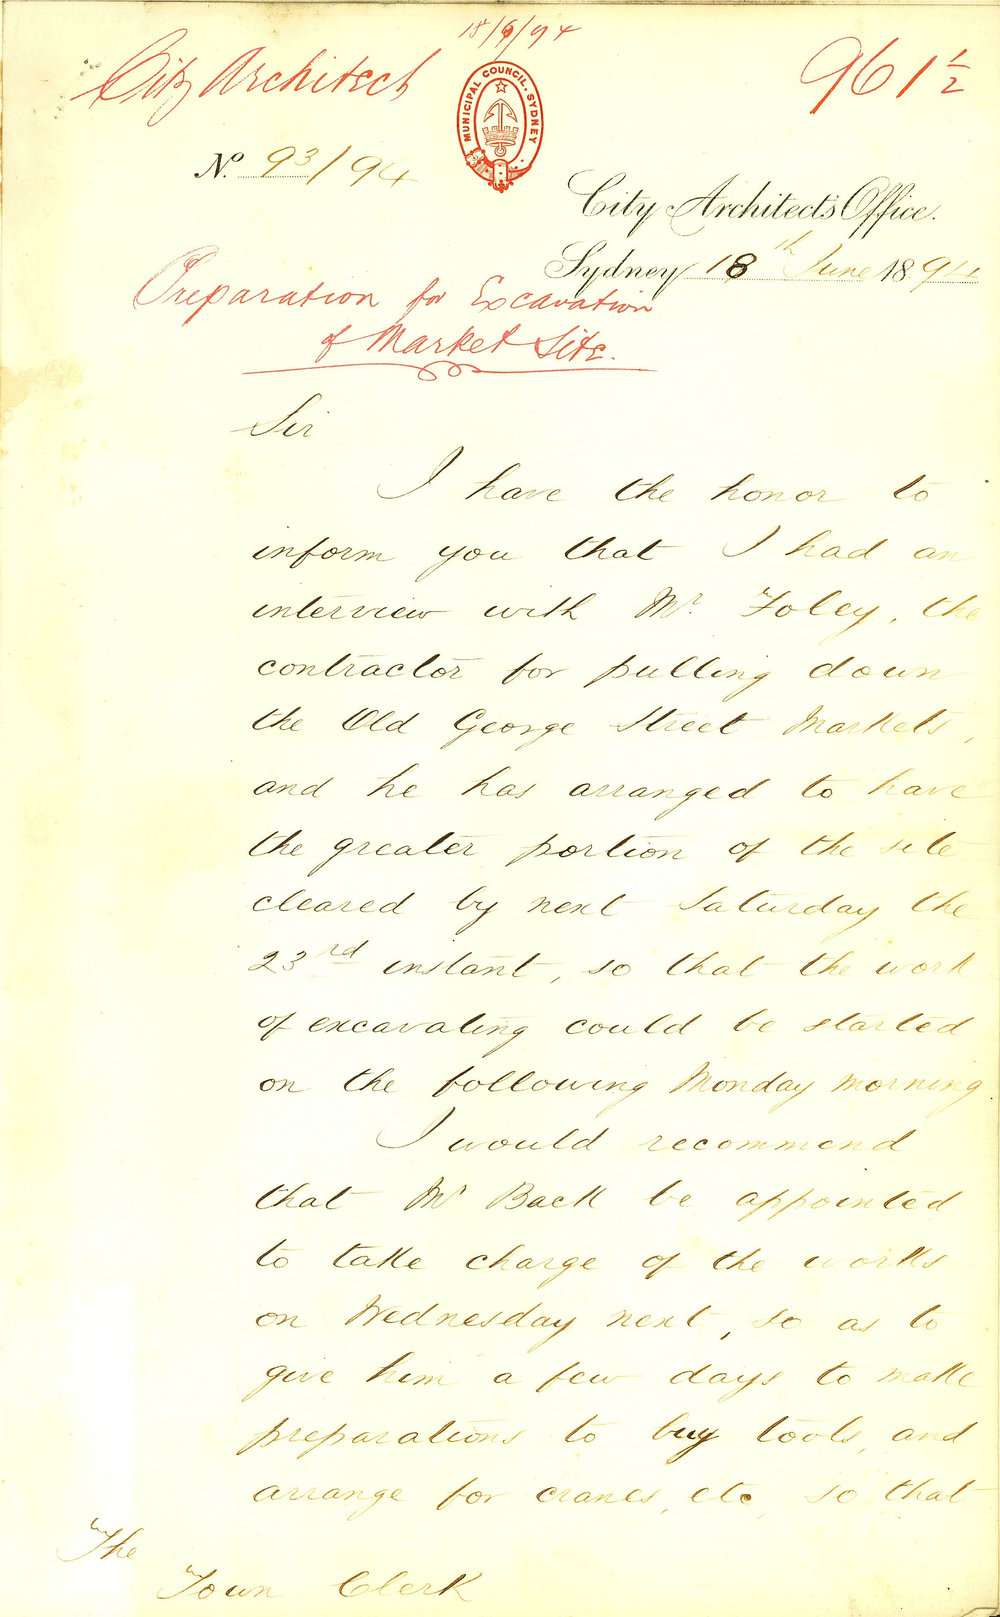 18/6/94
City Architect
961 1/2
MUNICIPAL COUNCIL · SYDNEY
No. 93/94
City Architect's Office.
Sydney 18th June 1894
Preparation for Excavation
of Market Site.
Sir
I have the honor to
inform you that I had an
interview with Mr. Foley, the
contractor for pulling down
the Old George Street Markets,
and he has arranged to have
the greater portion of the site
cleared by next Saturday the
23rd instant, so that the work
of excavating could be started
on the following Monday morning
I would recommend
that Mr Back be appointed
to take charge of the works
on Wednesday next, so as to
give him a few days to make
preparations to buy tools, and
arrange for cranes, etc, so that
The
Town Clerk